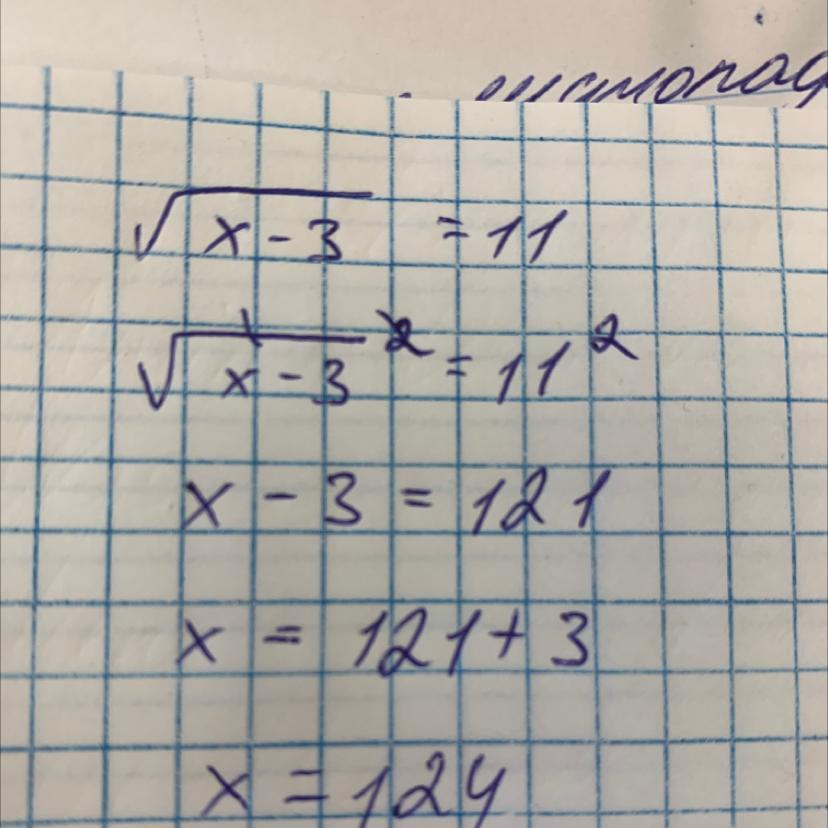 √x - 3 = 11
√x - 3² = 11²
x - 3 = 121
x = 121 + 3
x = 124